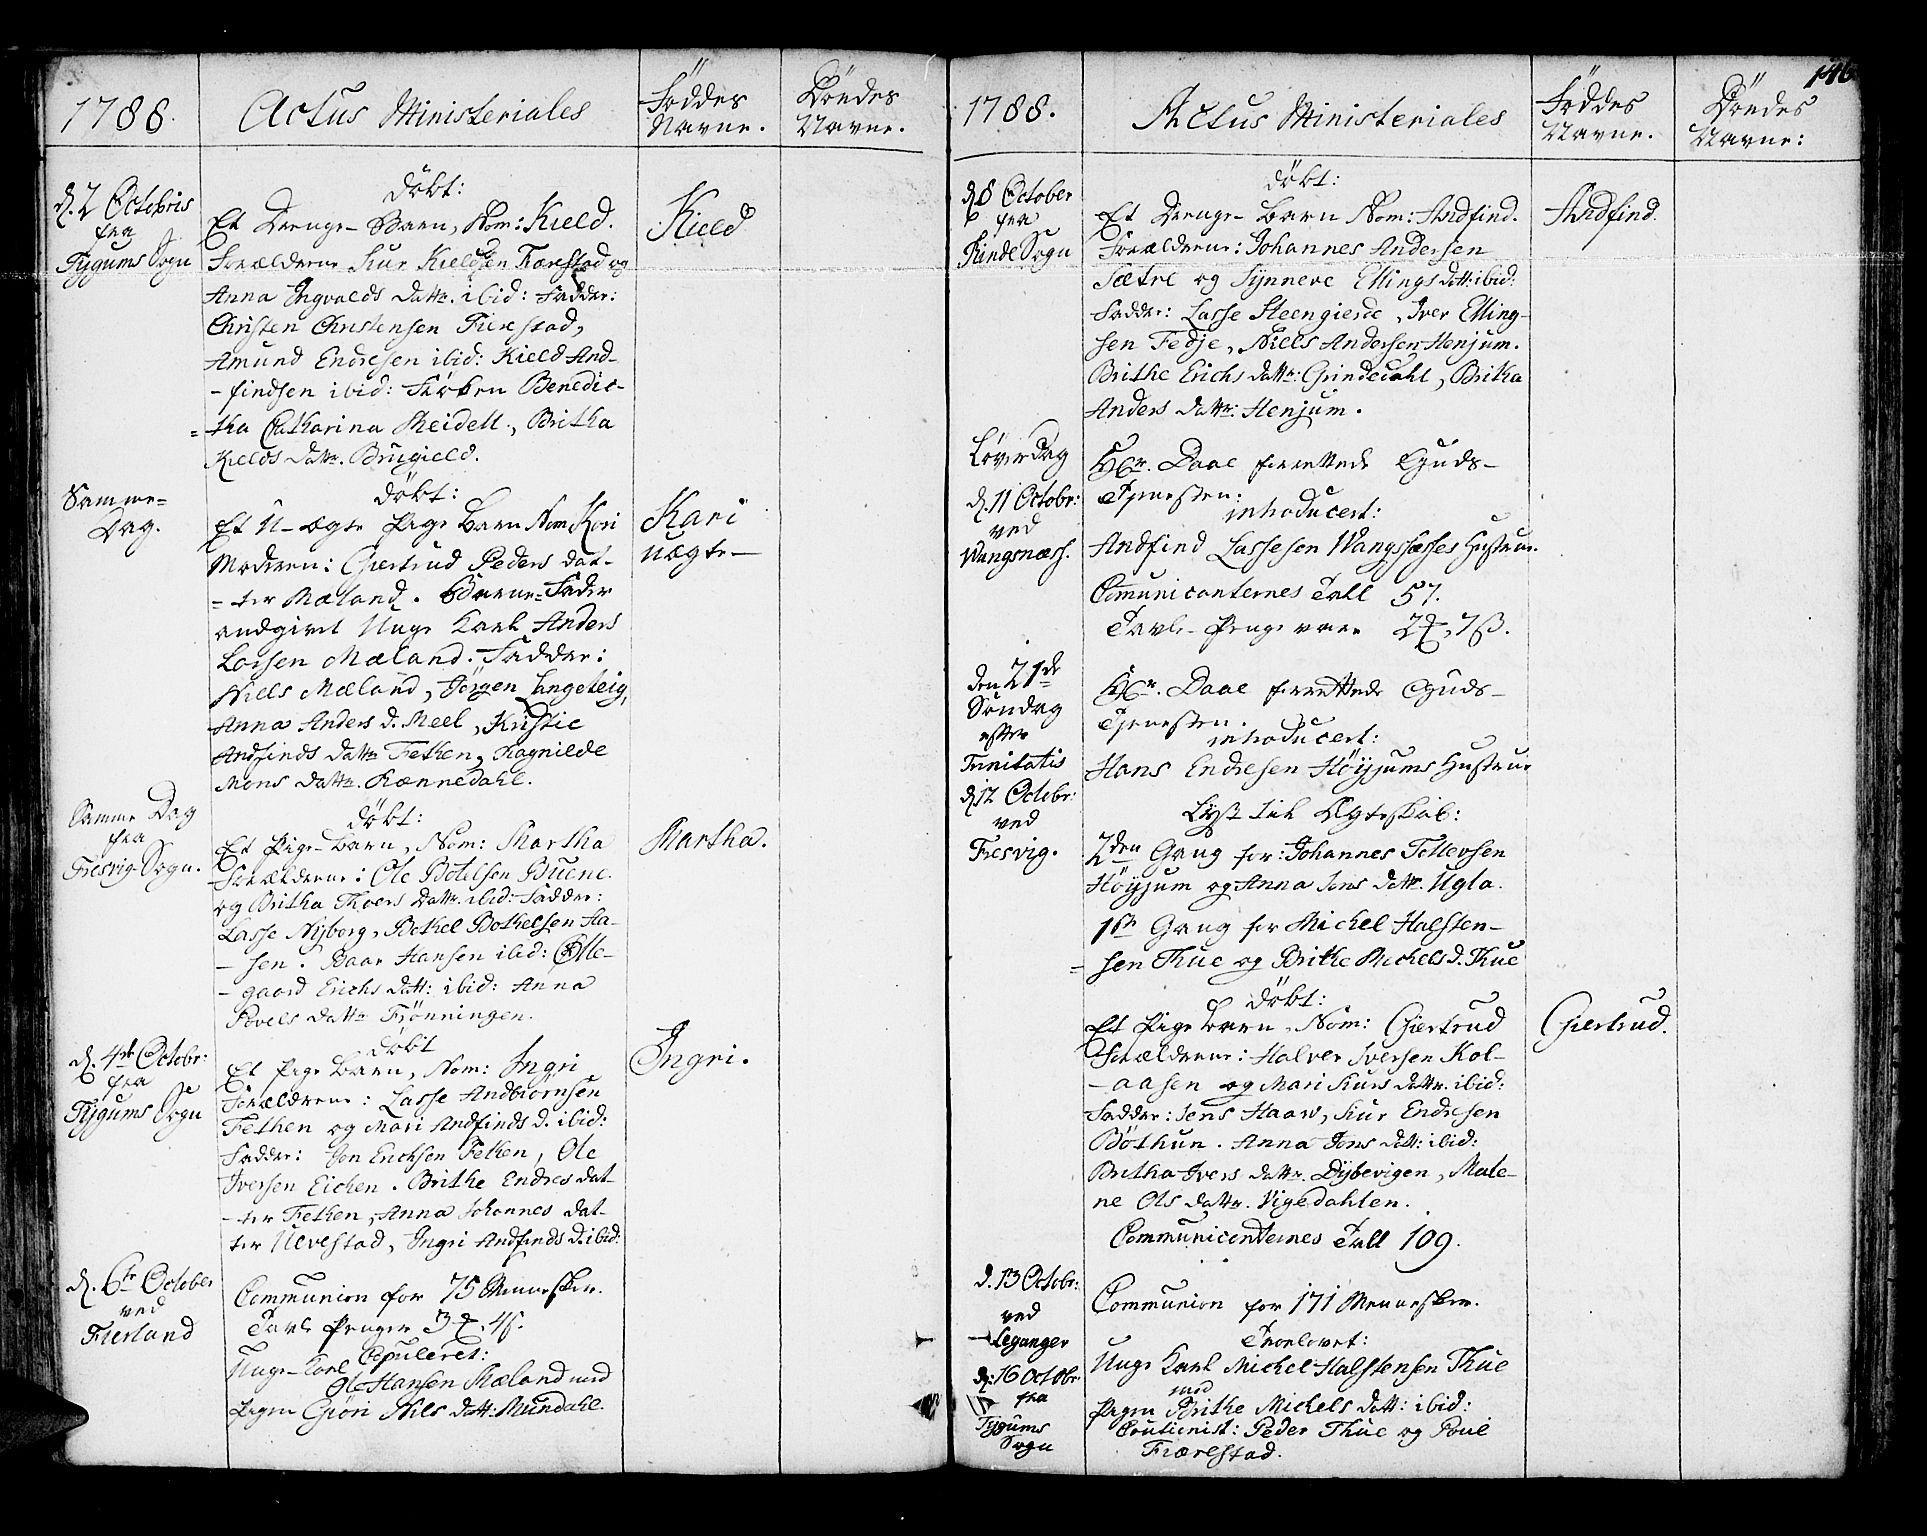 1788.
Actus Ministeriales
Föddes
Navne.
Döedes
Navne.
d. 2 Octobris
fra
Tygums Sogn
döbt:
Et Drenge-Barn, Nom: Kield.
Forældrene Siur Kieldsen Fierestad og
Anna Ingvalds datr. ibid: Fadder:
Christen Christensen Fierestad,
Amund Endresen ibid: Kield And-
-findsen ibid: Fröken Benedic-
=tha Catharina Meidell, Britha
Kields datr. Brugield.
Kield
Samme=
Dag.
döbt:
Et U-ægte Pige Barn Nom Kari
Moderen: Giertrud Peders dat-
=ter Mæland. Barne-Fader
andgivet Unge Karl Anders
Larsen Mæland. Fadder:
Niels Mæland, Jörgen Langeteig,
Anna Anders d. Meel, Kristie
Andfinds datr Fethen, Ragnilde
Mons datr. Rænnedahl.
Kari
uægte-
Samme Dag
fra
Fresvig Sogn.
döbt:
Et Pige-Barn, Nom: Martha
Forældrene: Ole Botelsen Buene.
og Britha Thoers datr. ibid: Fadder:
Lasse Nyborg, Bothel Bothelsen Ha-
-sen. Baar Hansen ibid: Olle-
-gaard Erichs datt: ibid: Anna
Povels datr Frönningen.
Martha.
d. 4de Octobr:
fra
Tygums Sogn
döbt
Et Pige Barn, Nom: Ingri
Forældrene: Lasse Andbiornsen
Fethen og Mari Andfinds d. ibid:
Fadder: Jon Erichsen Fethen, Ole
Iversen Eichen. Brithe Endres dat-
-ter Fethen, Anna Johannes dat-
ter Nevestad, Ingri Andfinds d. ibid:
Ingri.
d. 6te October
ved
Fierland
Communion for 75 Mennesker.
Tavle Penger 3 . 4 .
Copuleret:
Unge-Karl
Ole Hansen Mæland med
Pigen Giöri Nils datt: Mundahl.
146
1788.
Actus Ministeriales
Föddes
Navne.
Döedes
Navne:
d. 8 October
fra
Rinde Sogn
döbt:
Et Drenge-Barn Nom: Andfind.
Forældrene: Johannes Andersen
Sætre og Synneve Ellings datt: ibid:
Fadder: Lasse Steengierde, Iver Elling-
sen Fedje, Niels Andersen Henjum.
Brithe Erichs datr: Grindedahl, Britha
Anders datr. Henjum.
Andfind.
Löverdag
d. 11 Octobr:
ved
Wangsnæss.
Hr. Daae forrettede Guds-
Tjenesten.
introducert:
Andfind Lassesen Wangsnæsses Hustrue.
Comunicanternes Tall 57.
Tavle-Penge vare 2 , 7 ß.
den 21de
Söndag
efter
Trinitatis
d. 12 Octobr:
ved
Fresvig.
Hr. Daae forrettede Guds-
Tjenesten.
introducert:
Hans Endresen Höyjums Hustrue
Lyst til Ægteskab:
2den Gang for: Johannes Tollevsen
Höyjum og Anna Jens datr. Ugla.
1ste Gang for Michel Halsten-
=sen Thue og Brithe Michels d. Thue
döbt:
Et Pige Barn, Nom: Giertrud
Forældrene: Halver Iversen Kol-
-aasen og Mari Siurs datr. ibid:
Fadder: Jens Haaw, Siur Endresen
Böthun. Anna Jons datt: ibid:
Britha Ivers datr. Dybevigen, Male-
ne Ols datr. Vigedahlen.
Communicanternes Tall 109.
Giertrud.
d. 13 Octobr:
ved
Leganger
Communion for 171 Mennesker.
d: 16 Octobr
fra
Tygums
Sogn
Troelovet:
Unge Karl Michel Halstensen Thue
med
Pigen Brithe Michels datt: ibid:
Cautionist: Peder Thue og Poul
Fiærestad.